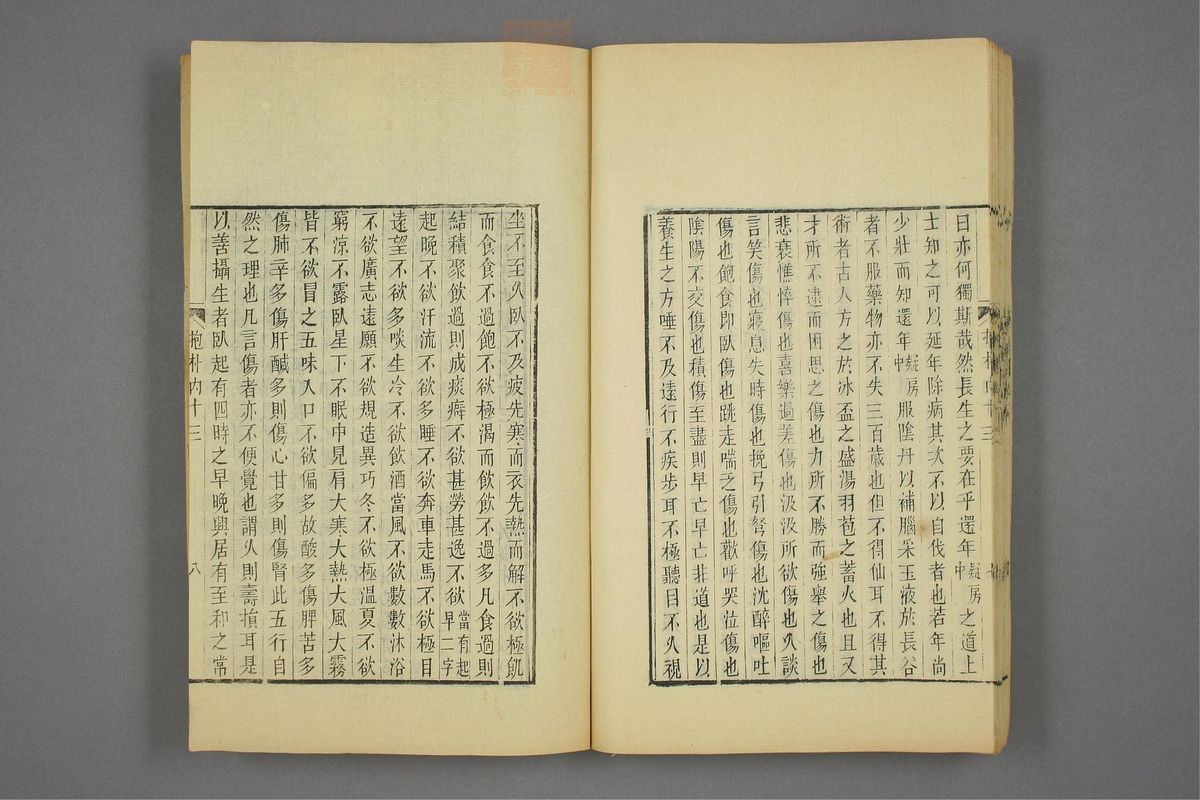 日亦何獨斯哉然長生之要在乎還年疑中房之道上
士知之可以延年除病其次不以自伐者也若年尚
少壯而知還年疑中房服陰丹以補腦采玉液於長谷
者不服藥物亦不失三百歲也但不得仙耳不得其
術者古人方之於冰盃之盛湯羽苞之蓄火也且又
才所不逮而困思之傷也力所不勝而強舉之傷也
悲哀憔悴傷也喜樂過差傷也汲汲所欲傷也久談
言笑傷也寢息失時傷也挽弓引弩傷也沈醉嘔吐
傷也飽食即臥傷也跳走喘乏傷也歡呼哭泣傷也
陰陽不交傷也積傷至盡則早亡早亡非道也是以
養生之方唾不及遠行不疾步耳不極聽目不久視
坐不至久臥不及疲先寒而衣先熱而解不欲極飢
而食食不過飽不欲極渴而飲飲不過多凡食過則
結積聚飲過則成痰癖不欲甚勞甚逸不欲當有起早二字
起晚不欲汗流不欲多睡不欲奔車走馬不欲極目
遠望不欲多啖生冷不欲飲酒當風不欲數數沐浴
不欲廣志遠願不欲規造異巧冬不欲極溫夏不欲
窮涼不露臥星下不眠中見肩大寒大熱大風大霧
皆不欲冒之五味入口不欲偏多故酸多傷脾苦多
傷肺辛多傷肝鹹多則傷心甘多則傷腎此五行自
然之理也凡言傷者亦不便覺也謂久則壽損耳是
以善攝生者臥起有四時之早晚興居有至和之常
抱朴內十三
八